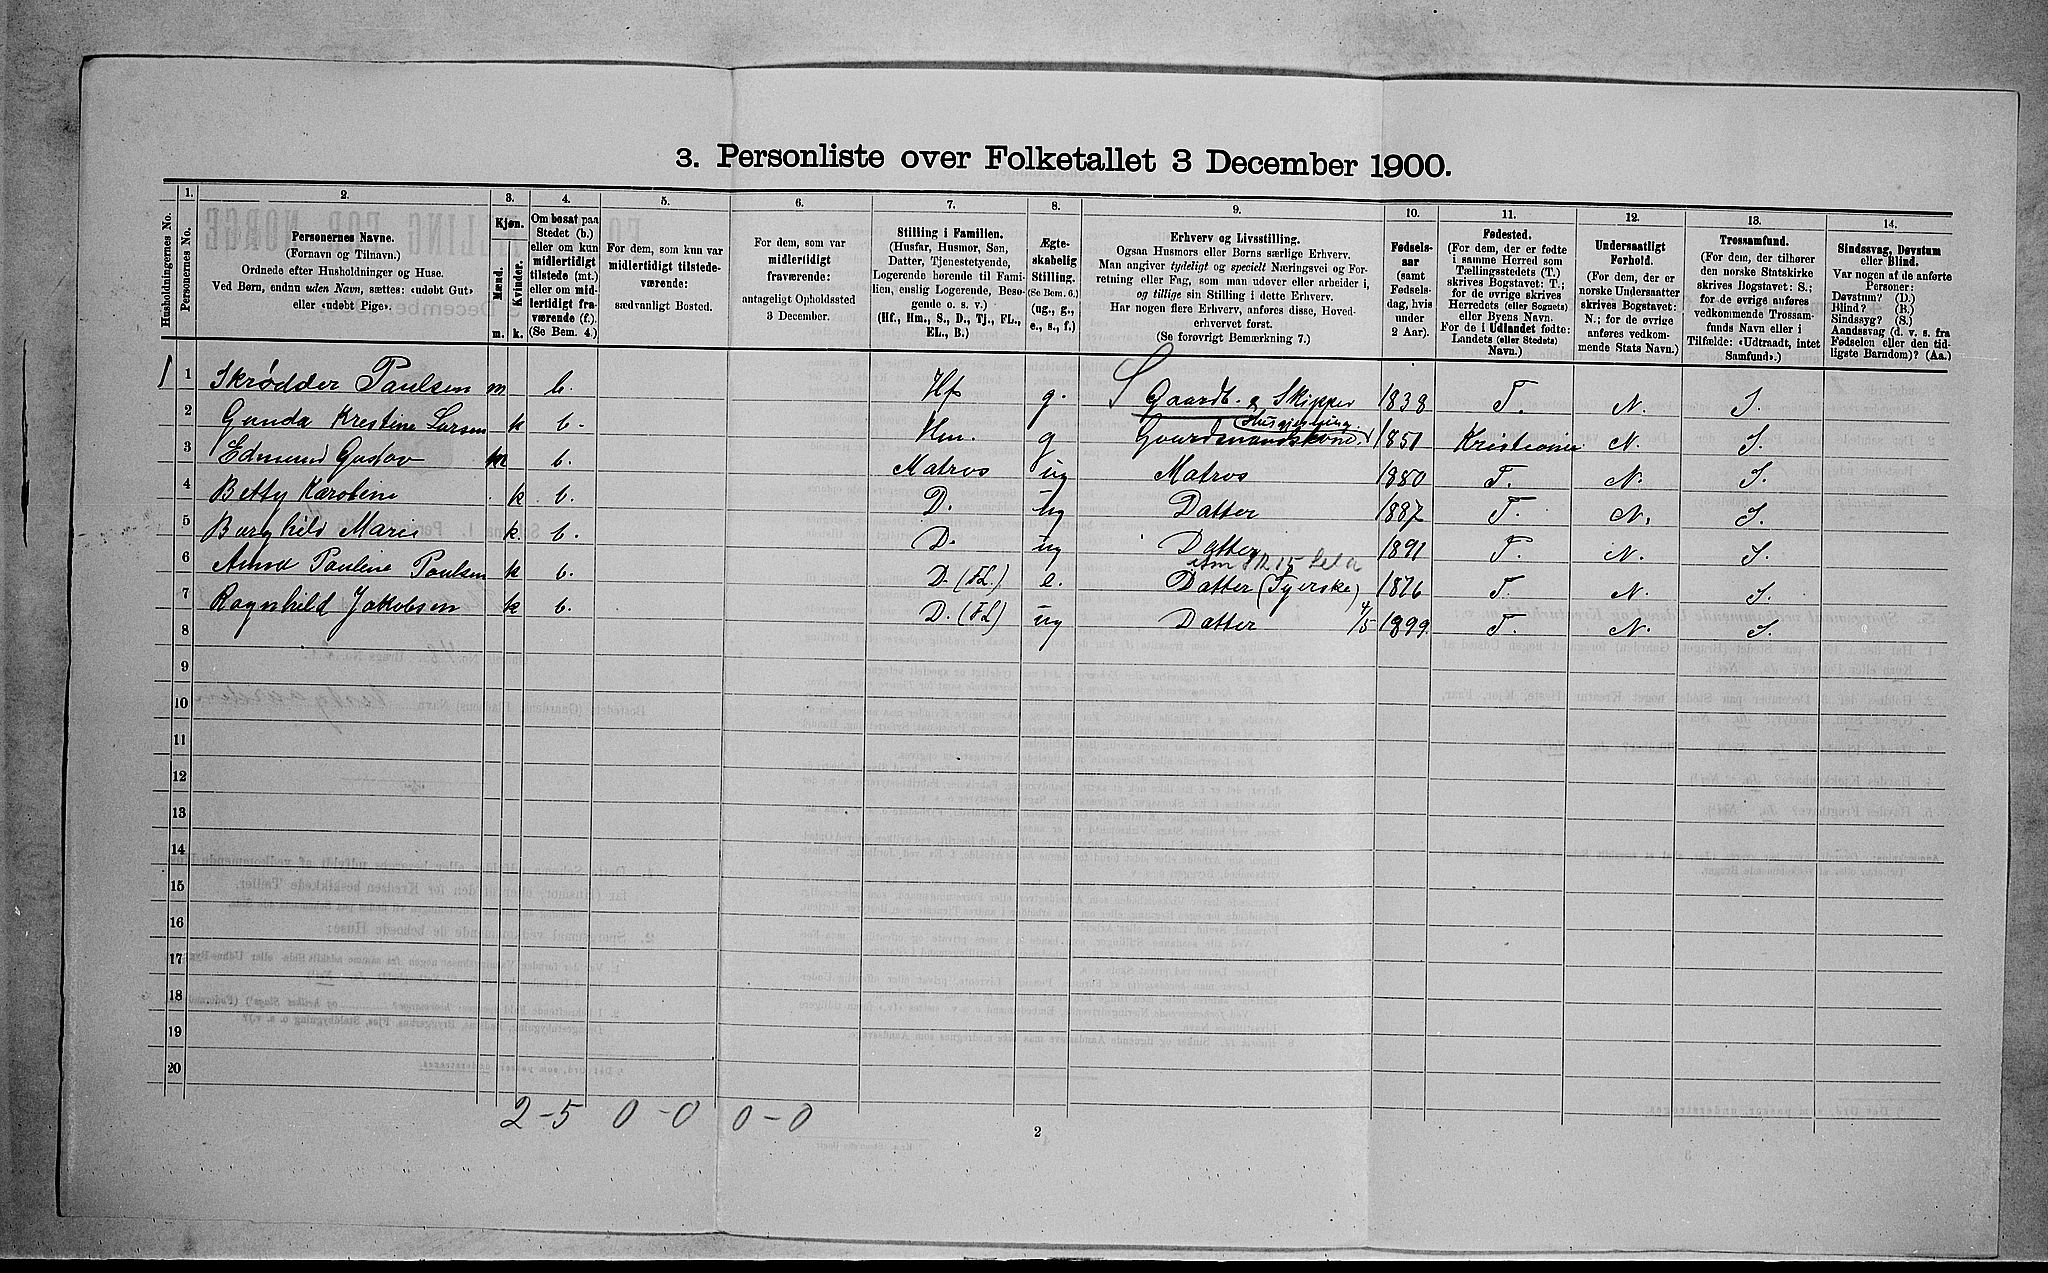 3. Personliste over Folketallet 3 December 1900.
Husholdningernes No.
1.
Personernes No.
2.
Personernes Navne.
(Fornavn og Tilnavn.)
Ordnede efter Husholdninger og Huse.
Ved Børn, endnu uden Navn, sættes: «udøbt Gut»
eller «udøbt Pige».
3.
Kjøn.
Mænd.
Kvinder.
m. k.
4.
Om bosat paa
Stedet (b.)
eller om kun
midlertidigt
tilstede (mt.)
eller om mid-
lertidigt fra-
værende (f.).
(Se Bem. 4.)
5.
For dem, som kun var
midlertidigt tilstede-
værende:
sædvanligt Bosted.
6.
For dem, som var
midlertidigt
fraværende:
antageligt Opholdssted
3 December.
7.
Stilling i Familien.
(Husfar, Husmor, Søn,
Datter, Tjenestetyende,
Logerende hørende til Fami-
lien, enslig Logerende, Besø-
gende o. s. v.)
(Hf., Hm., S., D., Tj., FL.,
EL., B.)
8.
Ægte-
skabelig
Stilling.
(Se Bem. 6.)
(ug., g.,
e., s., f.)
9.
Erhverv og Livsstilling.
Ogsaa Husmors eller Børns særlige Erhverv.
Man angiver tydeligt og specielt Næringsvei og For-
retning eller Fag, som man udøver eller arbeider i,
og tillige sin Stilling i dette Erhverv.
Har nogen flere Erhverv, anføres disse, Hoved-
erhvervet først.
(Se forøvrigt Bemærkning 7.)
10.
Fødsels-
aar
(samt
Fødsels-
dag, hvis
under
2 Aar).
11.
Fødested.
(For dem, der er fødte
i samme Herred som
Tællingsstedets (T.)
skrives Bogstavet: T.;
for de øvrige skrives
Herredets (eller Sognets)
eller Byens Navn.
For de i Udlandet fødte:
Landets (eller Stedets)
Navn.)
12.
Undersaatligt
Forhold.
(For dem, der er
norske Undersaatter
skrives Bogstavet:
N.; for de øvrige
anføres vedkom-
mende Stats Navn.)
13.
Trossamfund.
(For dem, der tilhører
den norske Statskirke
skrives Bogstavet: S.;
for de øvrige anføres
vedkommende Trossam-
funds Navn eller i
Tilfælde: «Udtraadt, intet
Samfund».)
14.
Sindssvag, Døvstum
eller Blind.
Var nogen af de anførte
Personer:
Døvstum? (D.)
Blind? (B.)
Sindssyg? (S.)
Aandssvag (d. v. s. fra
Fødselen eller den tid-
ligste Barndom)? (Aa.)
1 1 Skrødder Paulsen m b. Hf g. S Gaardb. & Skipper 1838 T. N. S.
2 Gunda Krestine Larsen k b. Hm. g Husgjerning. Gaardmandskone 1851 Kristiania N. S.
3 Edmund Gustav m b. Matros ug Matros 1880 T. N. S.
4 Betty Karoline k b. D. ug Datter 1887 T. N. S.
5 Borghild Marie k. b. D. ug Datter 1891 T. N. S.
6 Pauline Paulsen k b. D. (FL.) e. Datter 1876 T. N. S.
7 Ragnhild Jakobsen k b. D. (FL) ug Datter 4/5 1899 T. N. S.
8
9
10
11
12
13
14
15
16
17
18
19
20
2-5 0-0 0-0
2